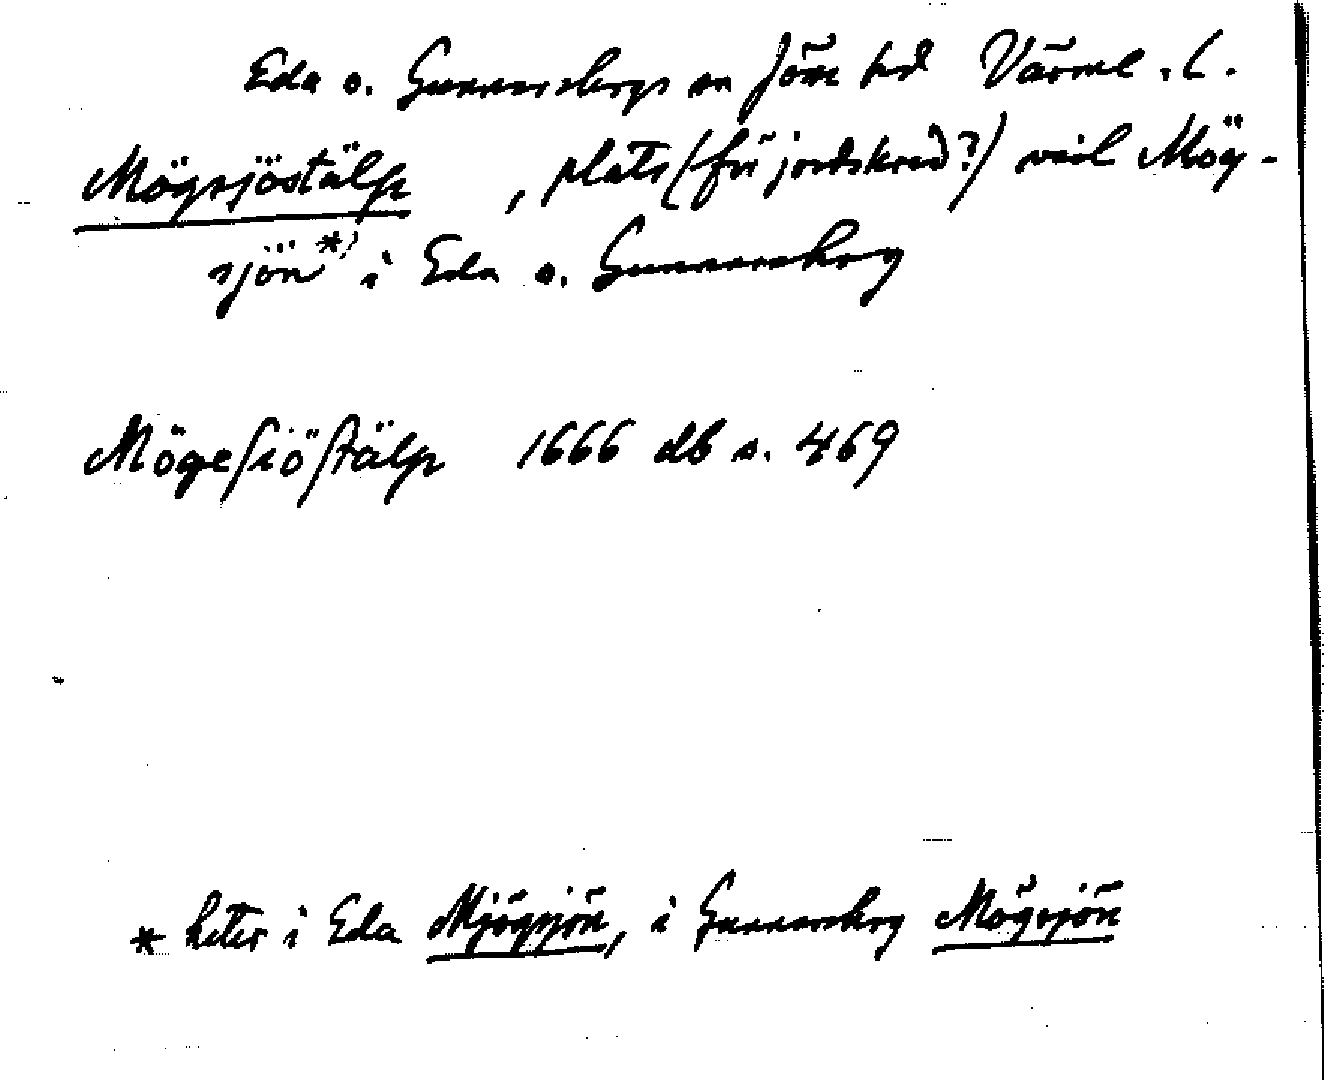 Eda o. Gunnarskogs sn Jösse hd Värml. l.
Mögsjöstälp , plats (för jordskred?) vid Mög-
sjön*) i Eda o. Gunnarskog
Mögesiöstälp 1666 db s. 469
* heter i Eda Mjögsjön, i Gunnarskog Mögsjön